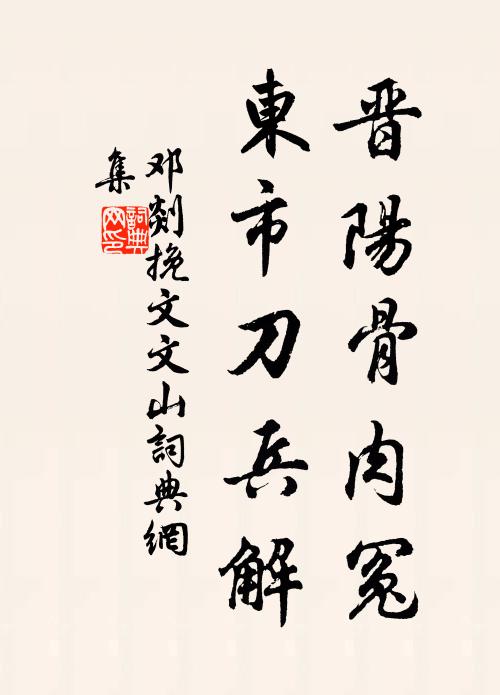 晋陽骨肉冤
東市刀兵解
邓剡挽文文山詞典網
集
詞典
网印